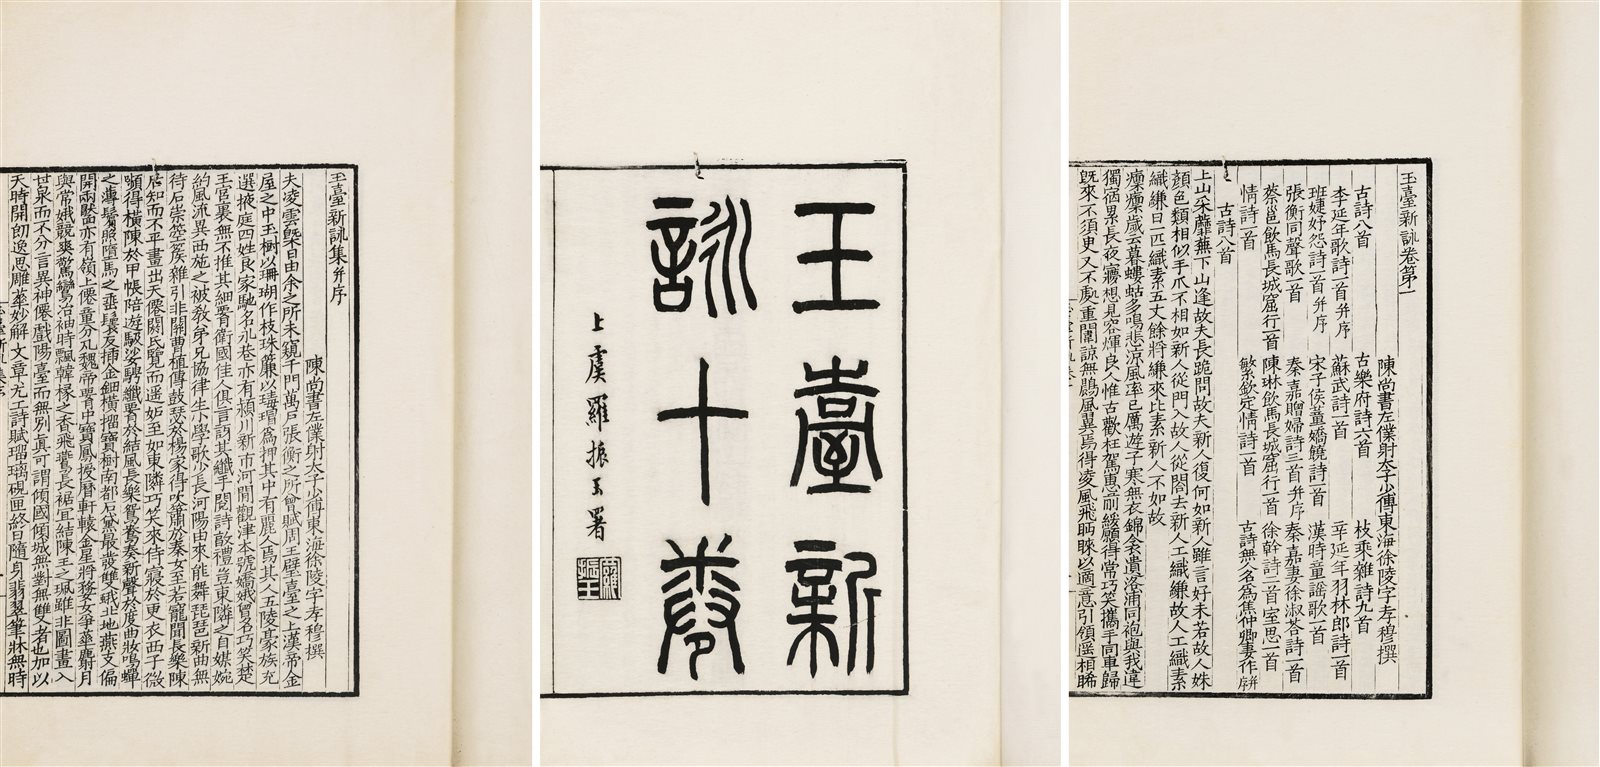 玉臺新詠集并序
陳尚書左僕射太子少傅東海徐陵字孝穆撰
夫凌雲槩日由余之所未窺千門萬戶張衡之所曾賦周王璧臺之上漢帝金
屋之中玉樹以珊瑚作枝珠簾以瑇瑁為押其中有麗人焉其人五陵豪族充
選掖庭四姓良家馳名永巷亦有潁川新市河間觀津本號嬌娥曾名巧笑楚
王宮裏無不推其細腰衛國佳人俱言訝其纖手閱詩敦禮豈東隣之自媒婉
約風流異西施之被教弟兄協律生小學歌少長河陽由來能舞琵琶新曲無
待石崇箜篌雜引非關曹植傳鼓瑟於楊家得吹簫於秦女至若寵聞長樂陳
后知而不平畫出天僊閼氏覽而遥妒至如東隣巧笑來侍寢於更衣西子微
顰得橫陳於甲帳陪遊馺娑騁纖腰於結風長樂鴛鴦奏新聲於度曲妝鳴蟬
之薄鬢照墮馬之垂鬟反插金鈿橫抽寶樹南都石黛最發雙蛾北地燕支偏
開兩靨亦有嶺上僊童分丸魏帝腰中寶鳳授曆軒轅金星將婺女爭華麝月
與常娥競爽驚鸞冶袖時飄韓掾之香飛鷰長裾宜結陳王之珮雖非圖畫入
甘泉而不分言異神僊戲陽臺而無別真可謂傾國傾城無對無雙者也加以
天時開朗逸思雕華妙解文章尤工詩賦瑠璃硯匣終日隨身翡翠筆牀無時
玉臺新
詠十卷
上虞羅振玉署
羅振玉
玉臺新詠卷第一
陳尚書左僕射太子少傅東海徐陵字孝穆撰
古詩八首 古樂府詩六首 枚乘雜詩九首
李延年歌詩一首并序 蘇武詩一首 辛延年羽林郎詩一首
班婕妤怨詩一首并序 宋子侯董嬌饒詩一首 漢時童謡歌一首
張衡同聲歌一首 秦嘉贈婦詩三首并序 秦嘉妻徐淑荅詩一首
蔡邕飲馬長城窟行一首 陳琳飲馬長城窟行一首 徐幹詩二首室思一首
情詩一首 繁欽定情詩一首 古詩無人名為焦仲卿妻作并序
古詩八首
上山采蘼蕪下山逢故夫長跪問故夫新人復何如新人雖言好未若故人姝
顏色類相似手爪不相如新人從門入故人從閤去新人工織縑故人工織素
織縑日一匹織素五丈餘將縑來比素新人不如故
凜凜歲云暮螻蛄多鳴悲涼風率已厲遊子寒無衣錦衾遺洛浦同袍與我違
獨宿累長夜寢想見容煇良人惟古歡枉駕惠前綏願得常巧笑攜手同車歸
旣來不須臾又不處重闈諒無鷐風翼焉得凌風飛眄睞以適意引領遥相睎